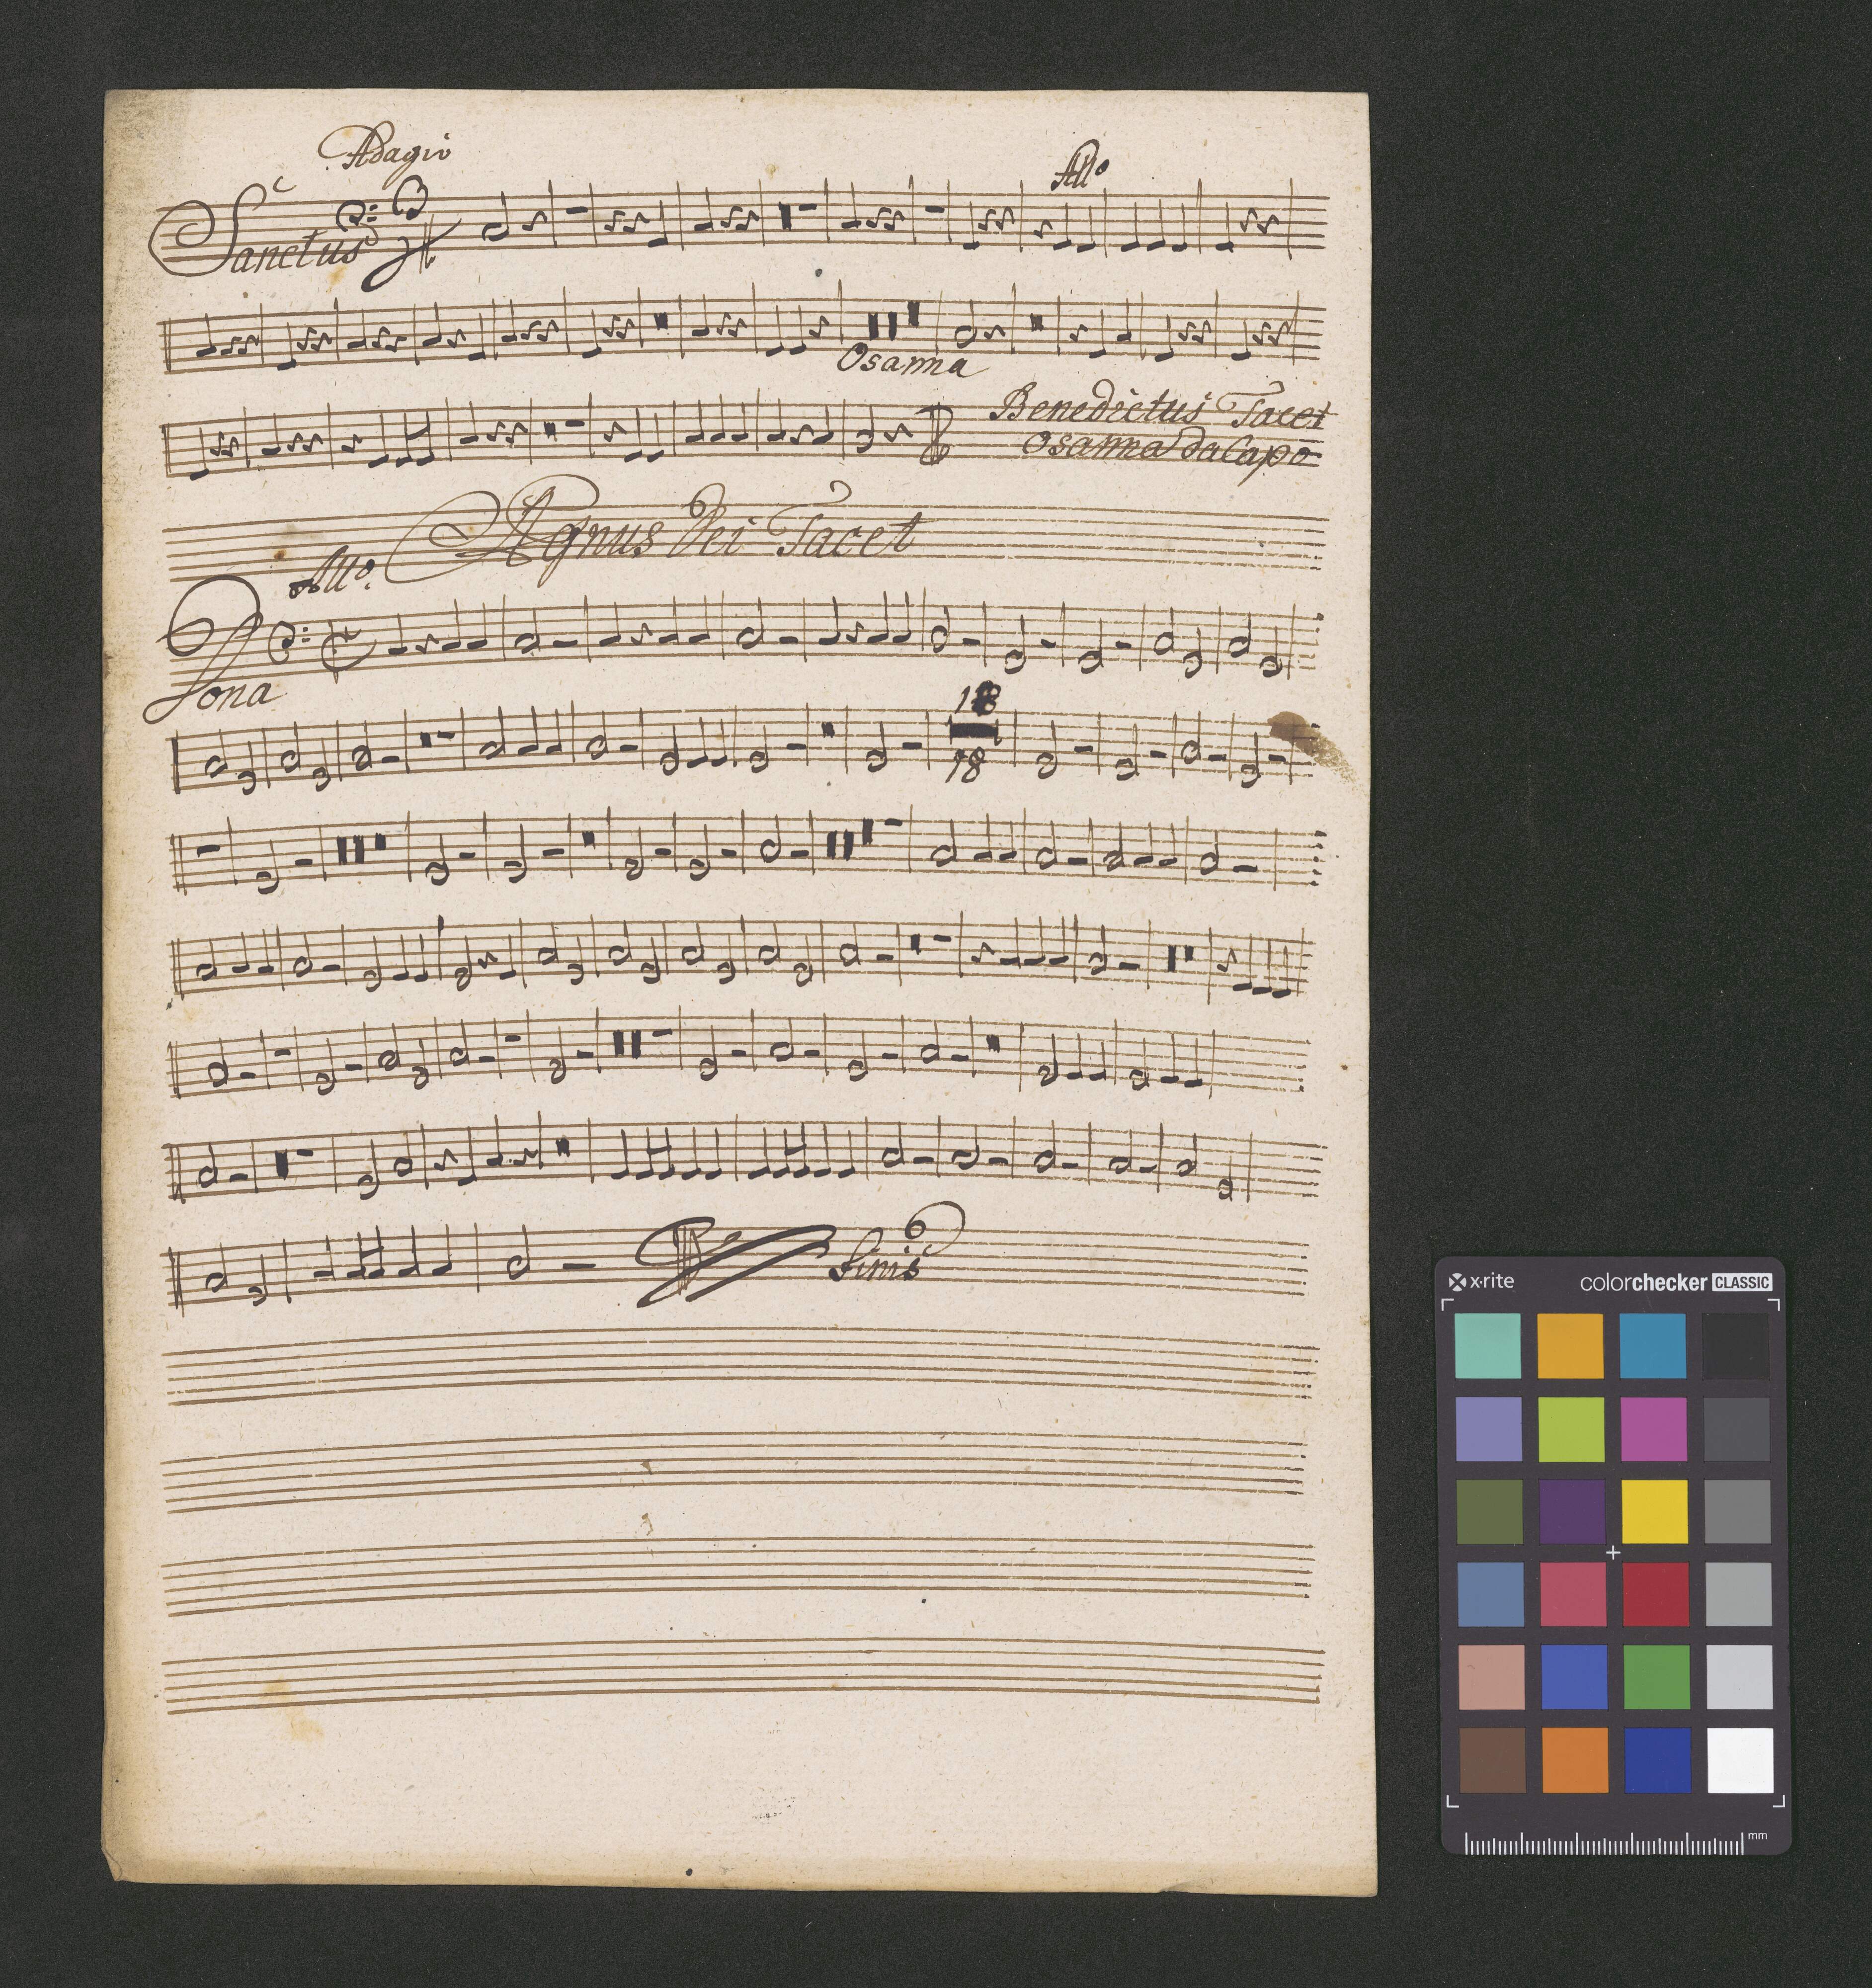 Adagio
Sanctus
All⁰
Osanna
Benedictus Tacet
Osanna da Capo
Agnus Dei Tacet
All⁰.
Dona
18
18
Finis
x·rite colorchecker CLASSIC
mm